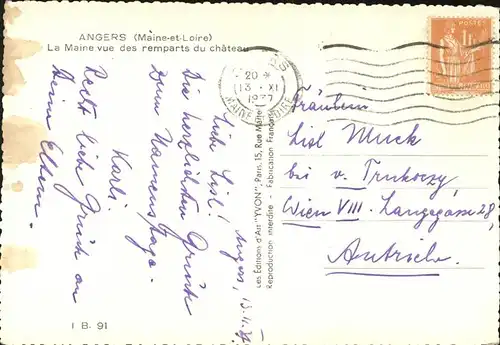 ANGERS (Maine-et-Loire)
La Maine vue des remparts du château
Angers, 13.11.37
Liebe Lisl!
Die herzlichsten Grüße
zum Namenstage.
Karli.
Recht liebe Grüße an
Deine Eltern.
1 B. 91
Les Éditions d'Art "YVON", Paris, 15, Rue Martel
Reproduction interdite - Fabrication Française
20 *
13 XI
1937
MAINE-ET-LOIRE
POSTES
1F
Fräulein
Lisl Muck
bei v. Trnkoczy,
Wien VIII. Langegasse 28,
Autriche